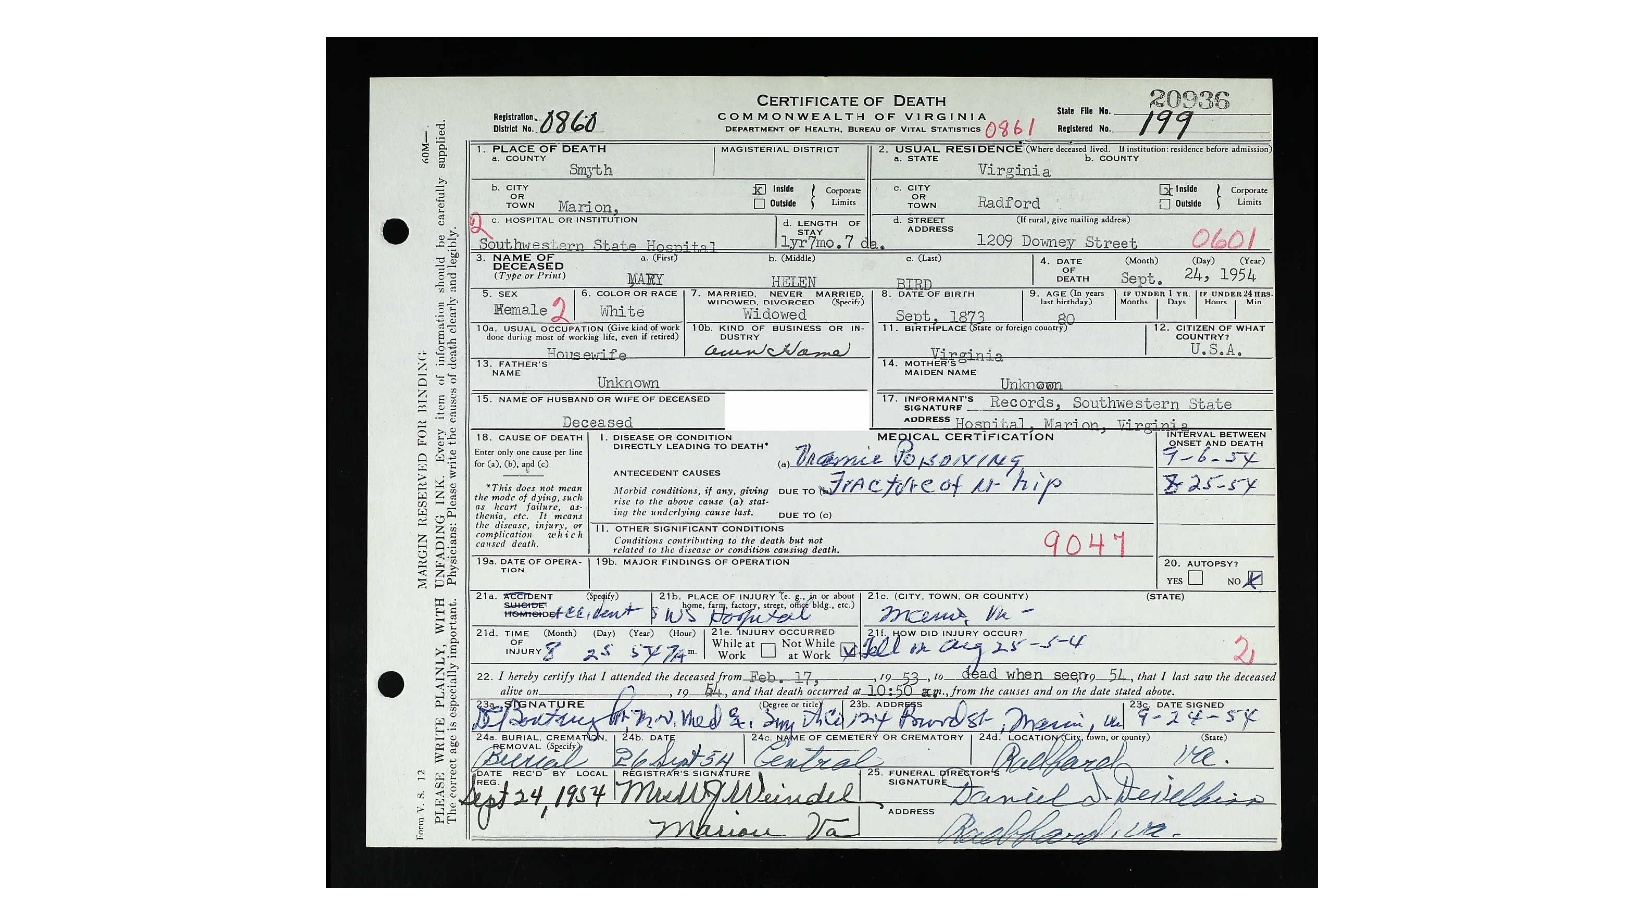 CERTIFICATE OF DEATH
COMMONWEALTH OF VIRGINIA
DEPARTMENT OF HEALTH, BUREAU OF VITAL STATISTICS 0861
Registration District No. 0860
State File No. 20936
Registered No. 199
1. PLACE OF DEATH
a. COUNTY
Smyth
MAGISTERIAL DISTRICT
2. USUAL RESIDENCE (Where deceased lived. If institution: residence before admission)
a. STATE b. COUNTY
Virginia
b. CITY OR TOWN Marion,
Inside Outside Corporate Limits
c. CITY OR TOWN Radford
Inside Outside Corporate Limits
2
c. HOSPITAL OR INSTITUTION
Southwestern State Hospital
d. LENGTH OF STAY
1yr7mo.7 da.
d. STREET ADDRESS (If rural, give mailing address)
1209 Downey Street 0601
3. NAME OF DECEASED (Type or Print)
a. (First) b. (Middle) c. (Last)
MARY HELEN BIRD
4. DATE OF DEATH (Month) (Day) (Year)
Sept. 24, 1954
5. SEX
Female 2
6. COLOR OR RACE
White
7. MARRIED, NEVER MARRIED, WIDOWED, DIVORCED (Specify)
Widowed
8. DATE OF BIRTH
Sept, 1873
9. AGE (In years last birthday)
80
IF UNDER 1 YR. Months Days
IF UNDER 24 HRS. Hours Min
10a. USUAL OCCUPATION (Give kind of work done during most of working life, even if retired)
Housewife
10b. KIND OF BUSINESS OR INDUSTRY
Own Home
11. BIRTHPLACE (State or foreign country)
Virginia
12. CITIZEN OF WHAT COUNTRY?
U.S.A.
13. FATHER'S NAME
Unknown
14. MOTHER'S MAIDEN NAME
Unknown
15. NAME OF HUSBAND OR WIFE OF DECEASED
Deceased
17. INFORMANT'S SIGNATURE Records, Southwestern State
ADDRESS Hospital, Marion, Virginia
18. CAUSE OF DEATH
Enter only one cause per line for (a), (b), and (c)
*This does not mean the mode of dying, such as heart failure, asthenia, etc. It means the disease, injury, or complication which caused death.
MEDICAL CERTIFICATION
INTERVAL BETWEEN ONSET AND DEATH
I. DISEASE OR CONDITION DIRECTLY LEADING TO DEATH*
(a) Uraemic Poisoning 9-6-54
ANTECEDENT CAUSES
Morbid conditions, if any, giving rise to the above cause (a) stating the underlying cause last.
DUE TO (b) Fracture of hip 8 25-54
DUE TO (c)
II. OTHER SIGNIFICANT CONDITIONS
Conditions contributing to the death but not related to the disease or condition causing death.
9047
19a. DATE OF OPERATION
19b. MAJOR FINDINGS OF OPERATION
20. AUTOPSY?
YES NO
21a. ACCIDENT SUICIDE HOMICIDE (Specify) Accident
21b. PLACE OF INJURY (e. g., in or about home, farm, factory, street, office bldg., etc.)
SWS Hospital
21c. (CITY, TOWN, OR COUNTY) (STATE)
Marion, Va -
21d. TIME OF INJURY (Month) (Day) (Year) (Hour)
8 25 54 7A m.
21e. INJURY OCCURRED
While at Work Not While at Work
21f. HOW DID INJURY OCCUR?
Fell on Aug 25-5-4
2
22. I hereby certify that I attended the deceased from Feb. 17, , 19 53, to dead when seen, 19 54, that I last saw the deceased
alive on , 19 54, and that death occurred at 10:50 a.m., from the causes and on the date stated above.
23a. SIGNATURE (Degree or title)
23b. ADDRESS
Marion, Va
23c. DATE SIGNED
9-24-54
24a. BURIAL, CREMATION, REMOVAL (Specify)
Burial
24b. DATE
26 Sept 54
24c. NAME OF CEMETERY OR CREMATORY
Central
24d. LOCATION (City, town, or county) (State)
Radford Va.
DATE REC'D BY LOCAL REG.
Sept 24, 1954
REGISTRAR'S SIGNATURE
Marion Va
25. FUNERAL DIRECTOR'S SIGNATURE
Daniel
ADDRESS
Radford, Va.
Form V. S. 12 MARGIN RESERVED FOR BINDING 60M—
PLEASE WRITE PLAINLY, WITH UNFADING INK. Every item of information should be carefully supplied.
The correct age is especially important. Physicians: Please write the causes of death clearly and legibly.